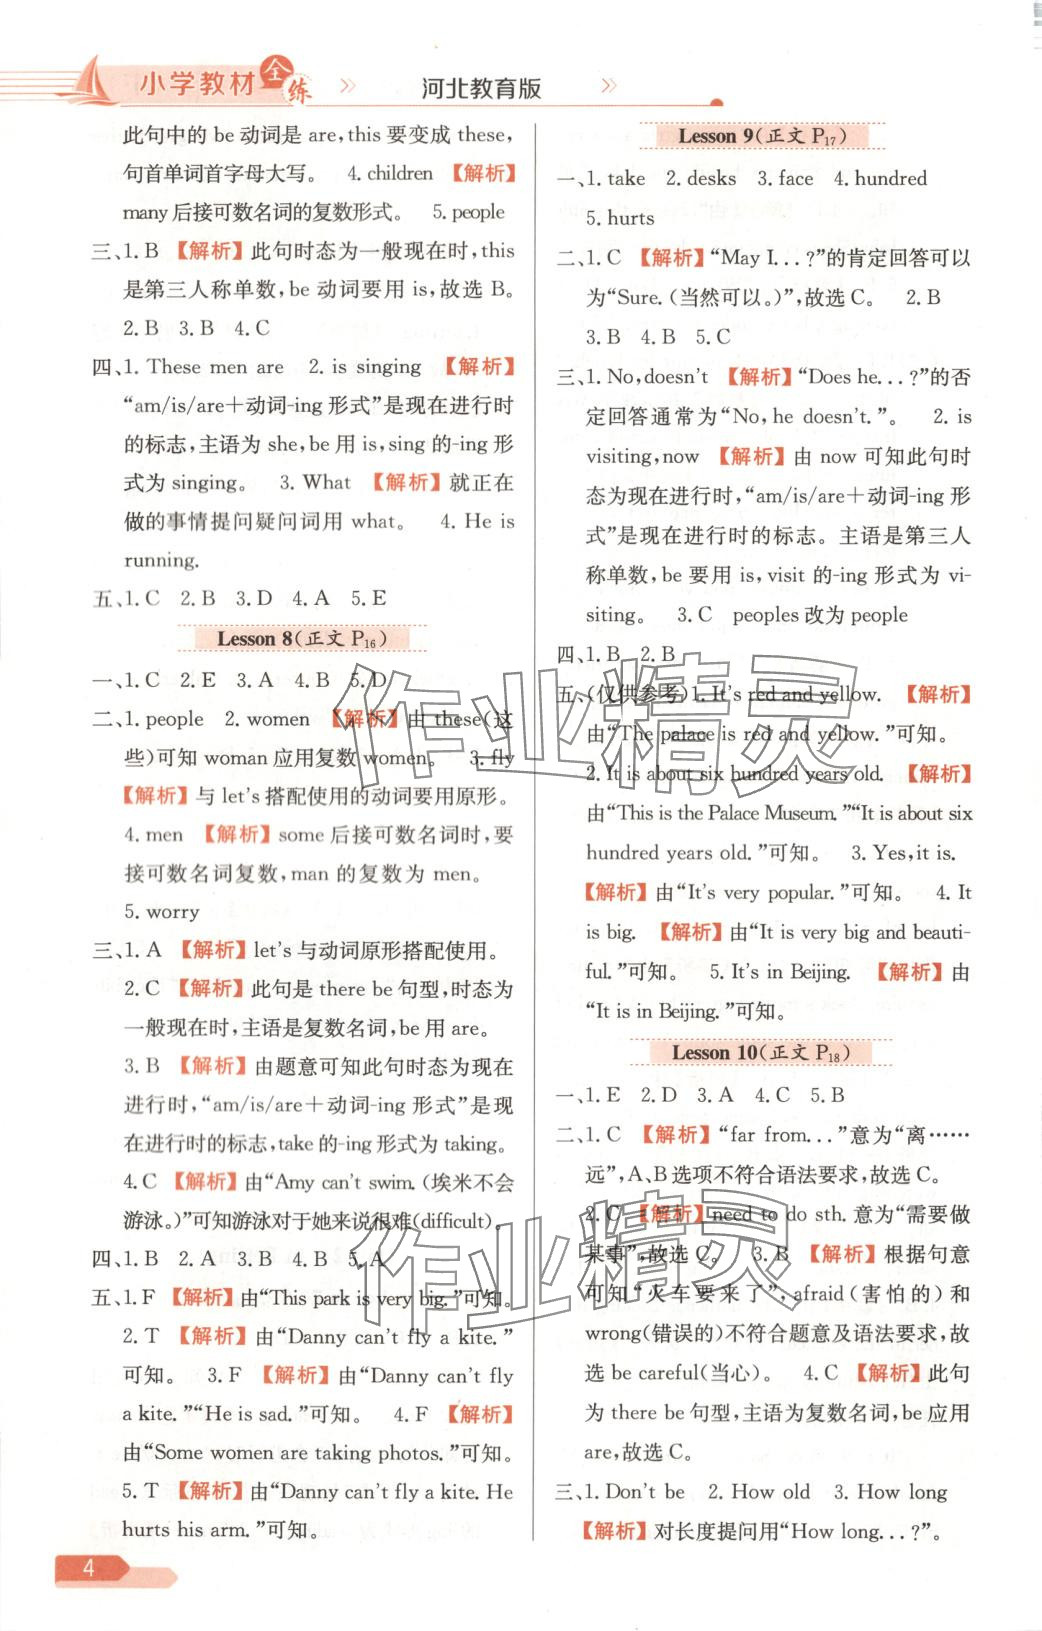 小学教材全练 》 河北教育版 》
此句中的 be 动词是 are,this 要变成 these,
句首单词首字母大写。 4. children 【解析】
many 后接可数名词的复数形式。 5. people
三、1. B 【解析】此句时态为一般现在时,this
是第三人称单数,be 动词要用 is,故选 B。
2. B 3. B 4. C
四、1. These men are 2. is singing 【解析】
“am/is/are+动词-ing 形式”是现在进行时
的标志,主语为 she,be 用 is,sing 的-ing 形
式为 singing。 3. What 【解析】就正在
做的事情提问疑问词用 what。 4. He is
running.
五、1. C 2. B 3. D 4. A 5. E
Lesson 8(正文 P16)
一、1. C 2. E 3. A 4. B 5. D
二、1. people 2. women 【解析】由 these(这
些)可知 woman 应用复数 women。 3. fly
【解析】与 let's 搭配使用的动词要用原形。
4. men 【解析】some 后接可数名词时,要
接可数名词复数,man 的复数为 men。
5. worry
三、1. A 【解析】let's 与动词原形搭配使用。
2. C 【解析】此句是 there be 句型,时态为
一般现在时,主语是复数名词,be 用 are。
3. B 【解析】由题意可知此句时态为现在
进行时,“am/is/are+动词-ing 形式”是现
在进行时的标志,take 的-ing 形式为 taking。
4. C 【解析】由“Amy can't swim. (埃米不会
游泳。)”可知游泳对于她来说很难(difficult)。
四、1. B 2. A 3. B 4. B 5. A
五、1. F 【解析】由“This park is very big.”可知。
2. T 【解析】由“Danny can't fly a kite.”
可知。 3. F 【解析】由“Danny can't fly
a kite.”“He is sad.”可知。 4. F 【解析】
由“Some women are taking photos.”可知。
5. T 【解析】由“Danny can't fly a kite. He
hurts his arm.”可知。
4
Lesson 9(正文 P17)
一、1. take 2. desks 3. face 4. hundred
5. hurts
二、1. C 【解析】“May I. . . ?”的肯定回答可以
为“Sure. (当然可以。)”,故选 C。 2. B
3. B 4. B 5. C
三、1. No,doesn't 【解析】“Does he. . . ?”的否
定回答通常为“No,he doesn't.”。 2. is
visiting,now 【解析】由 now 可知此句时
态为现在进行时,“am/is/are+动词-ing 形
式”是现在进行时的标志。主语是第三人
称单数,be 要用 is,visit 的-ing 形式为 vi-
siting。 3. C peoples 改为 people
四、1. B 2. B
五、(仅供参考)1. It's red and yellow. 【解析】
由“The palace is red and yellow.”可知。
2. It is about six hundred years old. 【解析】
由“This is the Palace Museum.”“It is about six
hundred years old.”可知。 3. Yes,it is.
【解析】由“It's very popular.”可知。 4. It
is big. 【解析】由“It is very big and beauti-
ful.”可知。 5. It's in Beijing. 【解析】由
“It is in Beijing.”可知。
Lesson 10(正文 P18)
一、1. E 2. D 3. A 4. C 5. B
二、1. C 【解析】“far from. . .”意为“离……
远”,A、B 选项不符合语法要求,故选 C。
2. C 【解析】need to do sth. 意为“需要做
某事”,故选 C。 3. B 【解析】根据句意
可知“火车要来了”,afraid(害怕的)和
wrong(错误的)不符合题意及语法要求,故
选 be careful(当心)。 4. C 【解析】此句
为 there be 句型,主语为复数名词,be 应用
are,故选 C。
三、1. Don't be 2. How old 3. How long
【解析】对长度提问用“How long. . . ?”。
作业精灵
作业精灵